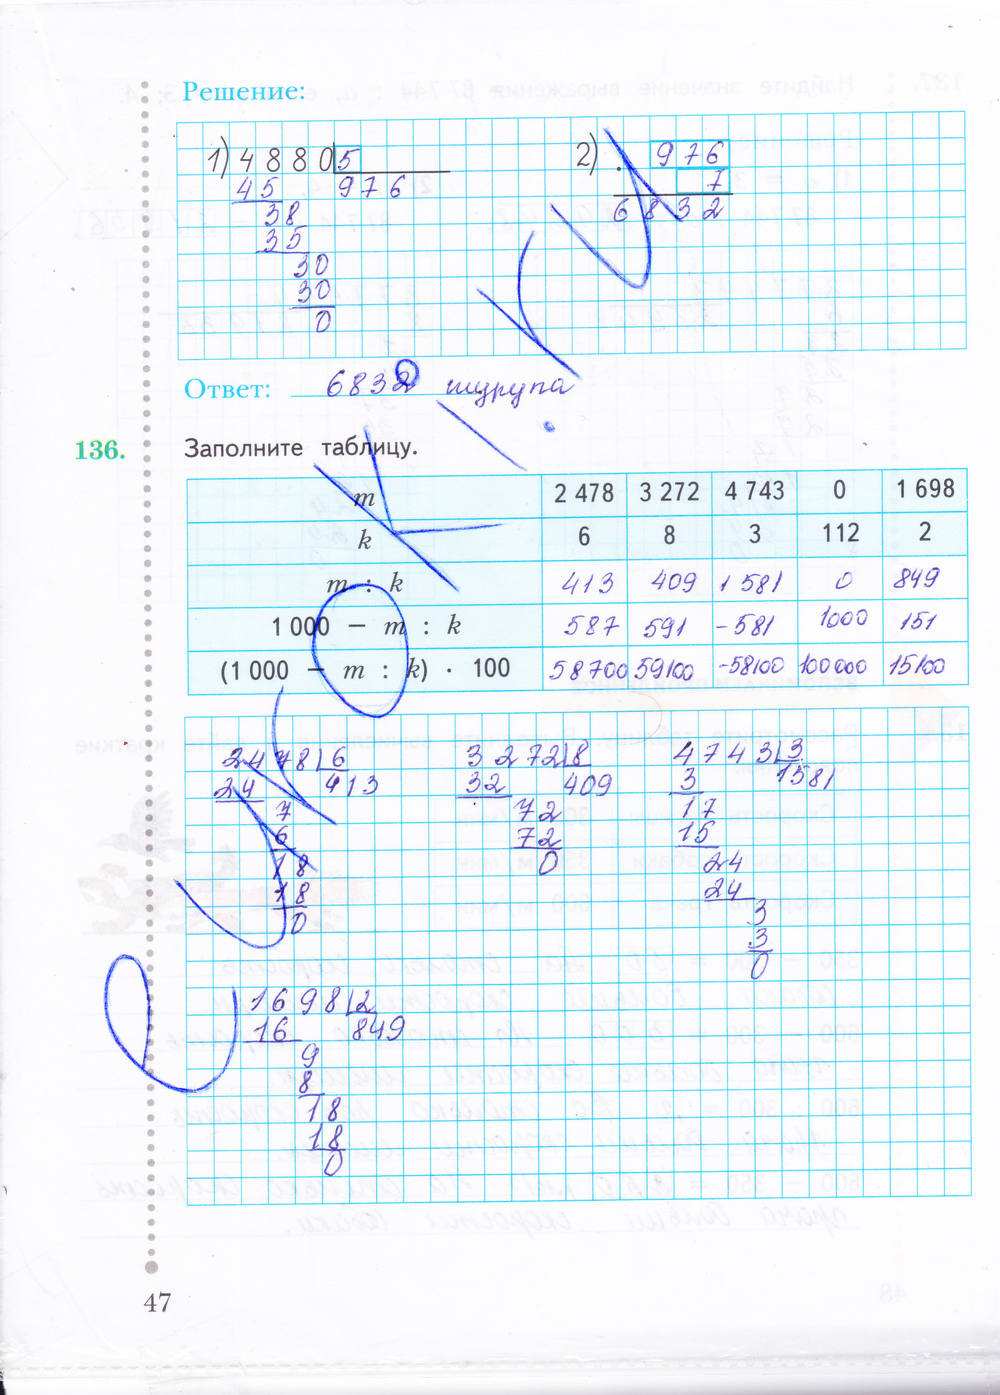 Решение:
1) 4880 5
45 976
38
35
30
30
0
2) 976
7
6832
Ответ: 6832 шурупа
136. Заполните таблицу.
m 2 478 3 272 4 743 0 1 698
k 6 8 3 112 2
m : k 413 409 1 581 0 849
1 000 − m : k 587 591 -581 1000 151
(1 000 − m : k) · 100 58700 59100 -58100 100000 15100
2478 6
24 413
7
6
18
18
0
3272 8
32 409
72
72
0
4743 3
3 1581
17
15
24
24
3
3
0
1698 2
16 849
9
8
18
18
0
47